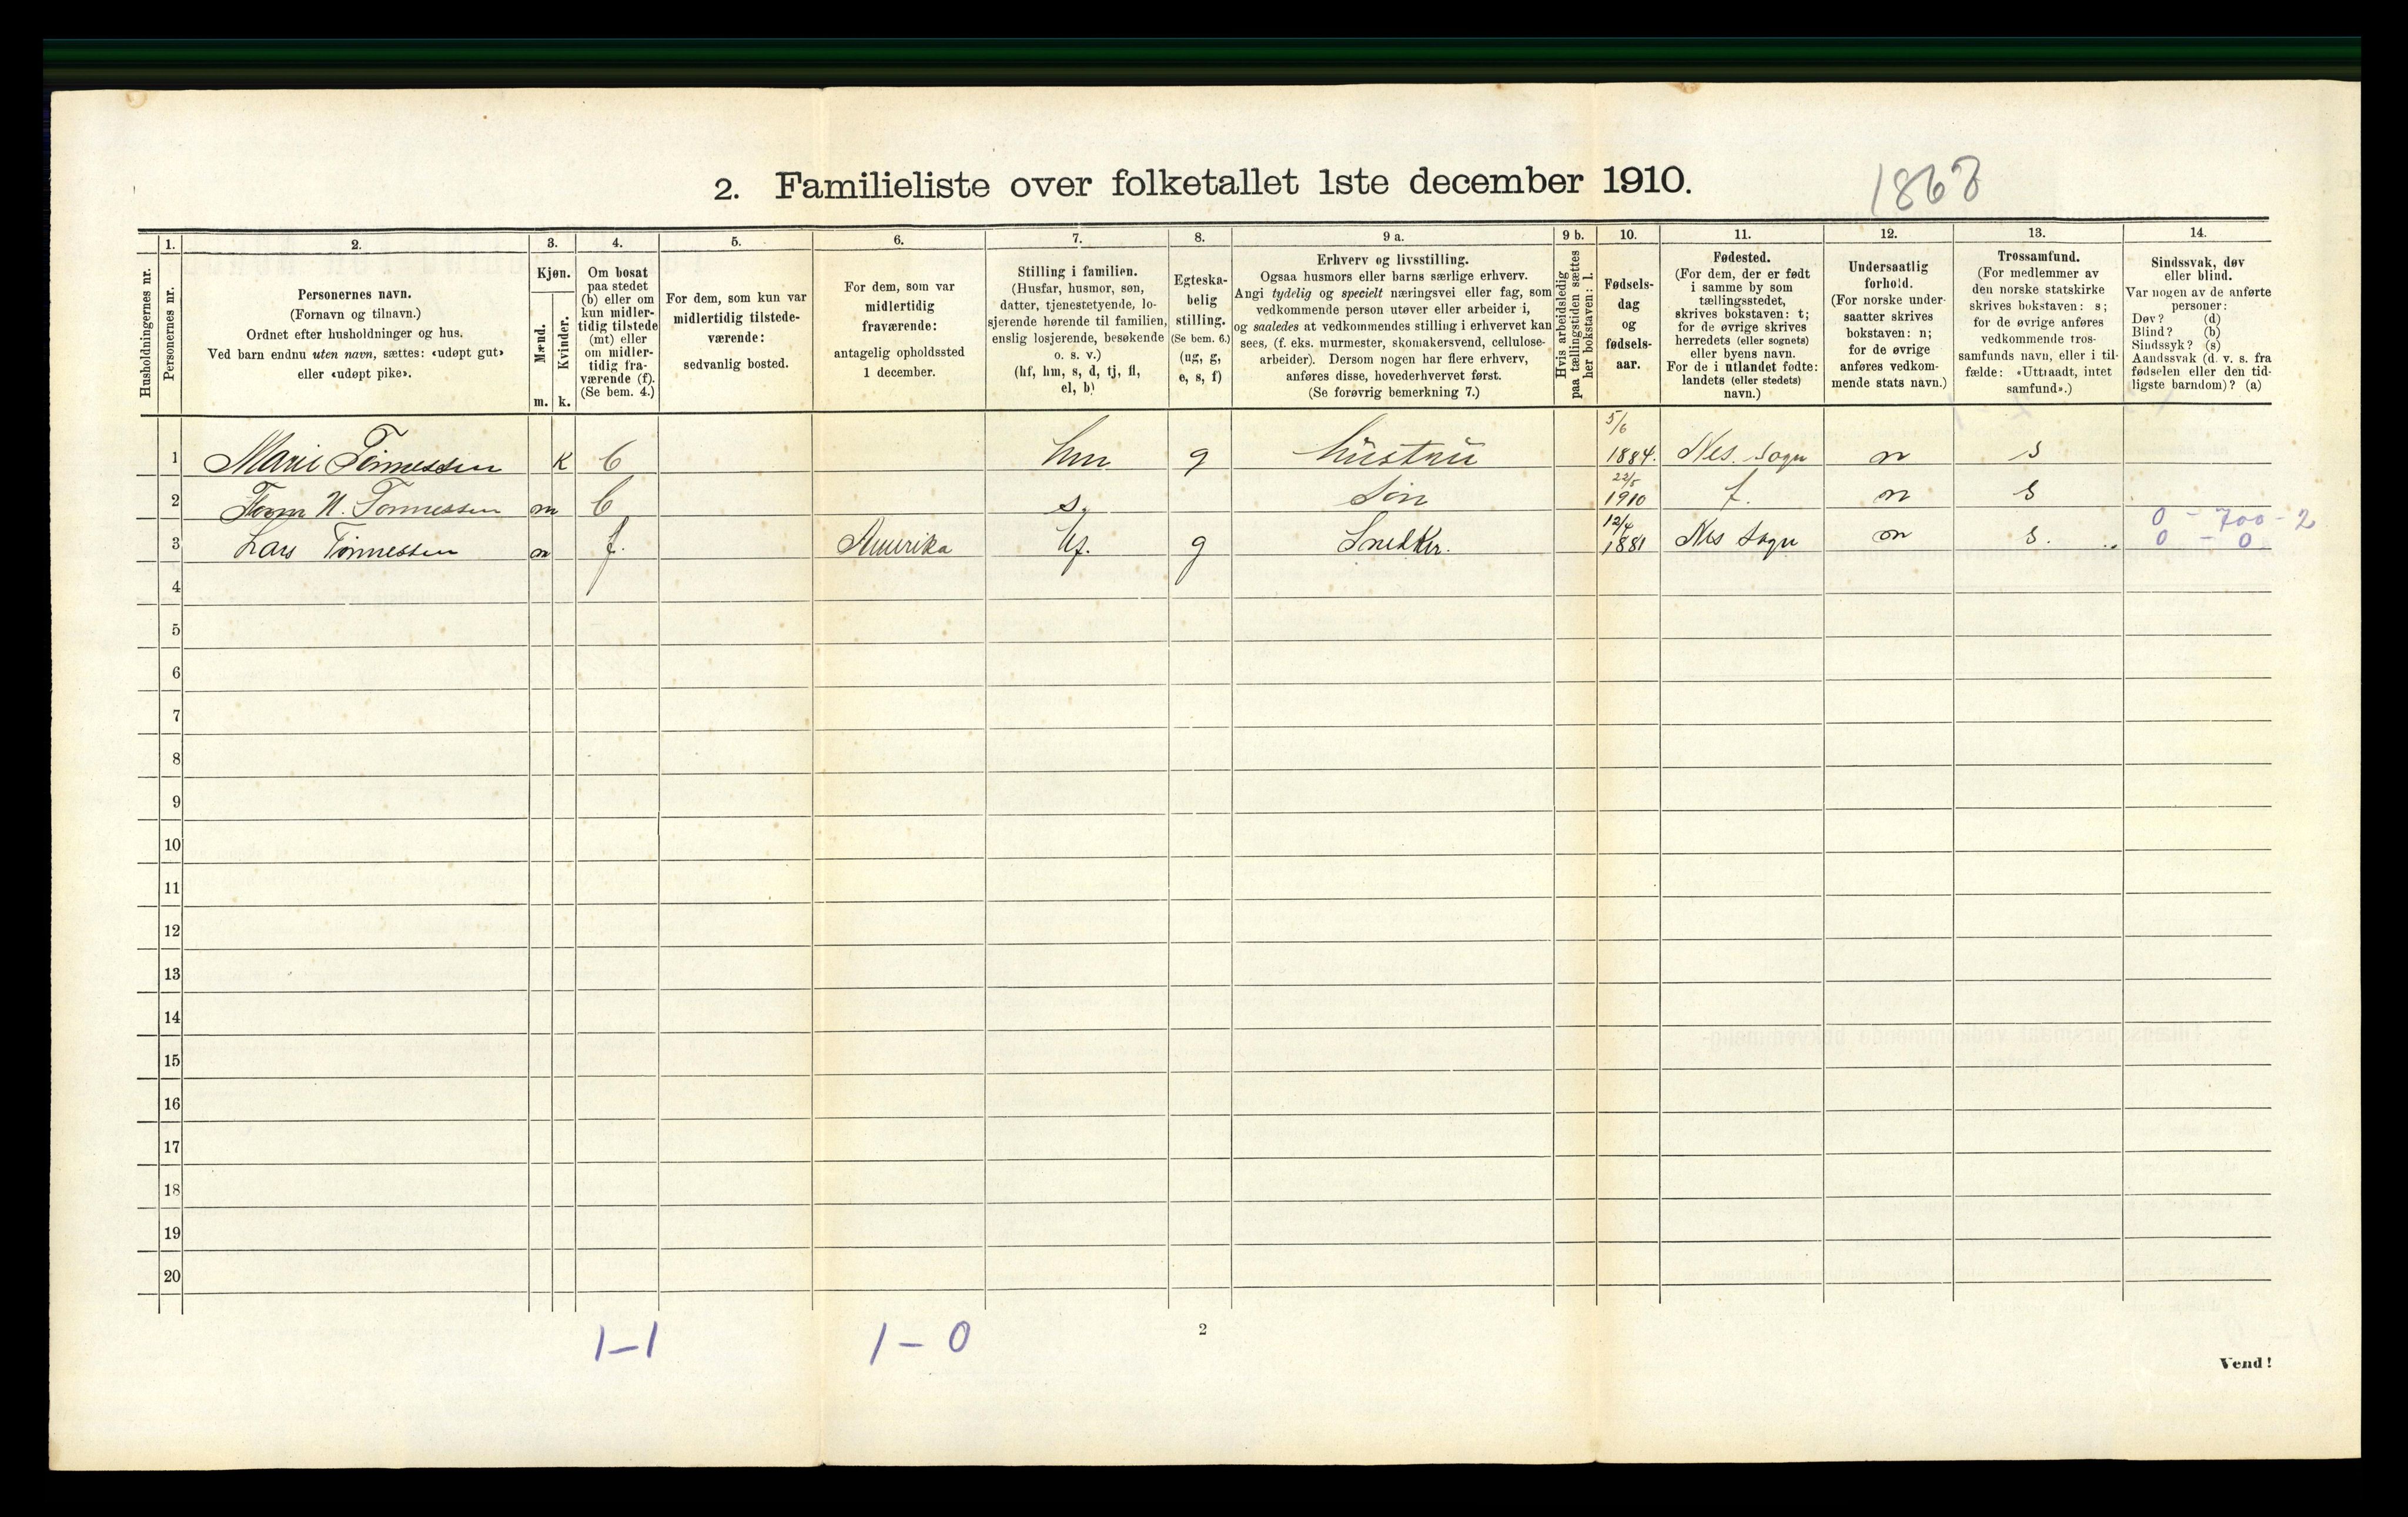 2. Familieliste over folketallet 1ste december 1910.
1868
Husholdningernes nr.
1.
Personernes nr.
2.
Personernes navn.
(Fornavn og tilnavn.)
Ordnet efter husholdninger og hus.
Ved barn endnu uten navn, sættes: «udøpt gut»
eller «udøpt pike».
3.
Kjøn.
Mænd.
Kvinder.
m. k.
4.
Om bosat
paa stedet
(b) eller om
kun midler-
tidig tilstede
(mt) eller
om midler-
tidig fra-
værende (f).
(Se bem. 4.)
5.
For dem, som kun var
midlertidig tilstede-
værende:
sedvanlig bosted.
6.
For dem, som var
midlertidig
fraværende:
antagelig opholdssted
1 december.
7.
Stilling i familien.
(Husfar, husmor, søn,
datter, tjenestetyende, lo-
sjerende hørende til familien,
enslig losjerende, besøkende
o. s. v.)
(hf, hm, s, d, tj, fl,
el, b)
8.
Egteska-
belig
stilling.
(Se bem. 6.)
(ug, g,
e, s, f)
9 a.
Erhverv og livsstilling.
Ogsaa husmors eller barns særlige erhverv.
Angi tydelig og specielt næringsvei eller fag, som
vedkommende person utøver eller arbeider i,
og saaledes at vedkommendes stilling i erhvervet kan
sees, (f. eks. murmester, skomakersvend, cellulose-
arbeider). Dersom nogen har flere erhverv,
anføres disse, hovederhvervet først.
(Se forøvrig bemerkning 7.)
9 b.
Hvis arbeidsledig
paa tællingstiden sættes
her bokstaven: l.
10.
Fødsels-
dag
og
fødsels-
aar.
11.
Fødested.
(For dem, der er født
i samme by som
tællingsstedet,
skrives bokstaven: t;
for de øvrige skrives
herredets (eller sognets)
eller byens navn.
For de i utlandet fødte:
landets (eller stedets)
navn.)
12.
Undersaatlig
forhold.
(For norske under-
saatter skrives
bokstaven: n;
for de øvrige
anføres vedkom-
mende stats navn.)
13.
Trossamfund.
(For medlemmer av
den norske statskirke
skrives bokstaven: s;
for de øvrige anføres
vedkommende tros-
samfunds navn, eller i til-
fælde: «Uttraadt, intet
samfund».)
14.
Sindssvak, døv
eller blind.
Var nogen av de anførte
personer:
Døv? (d)
Blind? (b)
Sindssyk? (s)
Aandssvak (d. v. s. fra
fødselen eller den tid-
ligste barndom)? (a)
1 Marie Tönnessen K b hm g hüstrü 5/6 1884. Nes. Sogn n s
2 N. Tönnessen m b s. Sön 22/5 1910 t. n s
3 Lars Tönnessen m f. Amerika hf. g Snedker. 12/4 1881 Nes Sogn n s.
0 - 700 - 2
0 - 0
4
5
6
7
8
9
10
11
12
13
14
15
16
17
18
19
20
1-1 1-0
2
Vend!